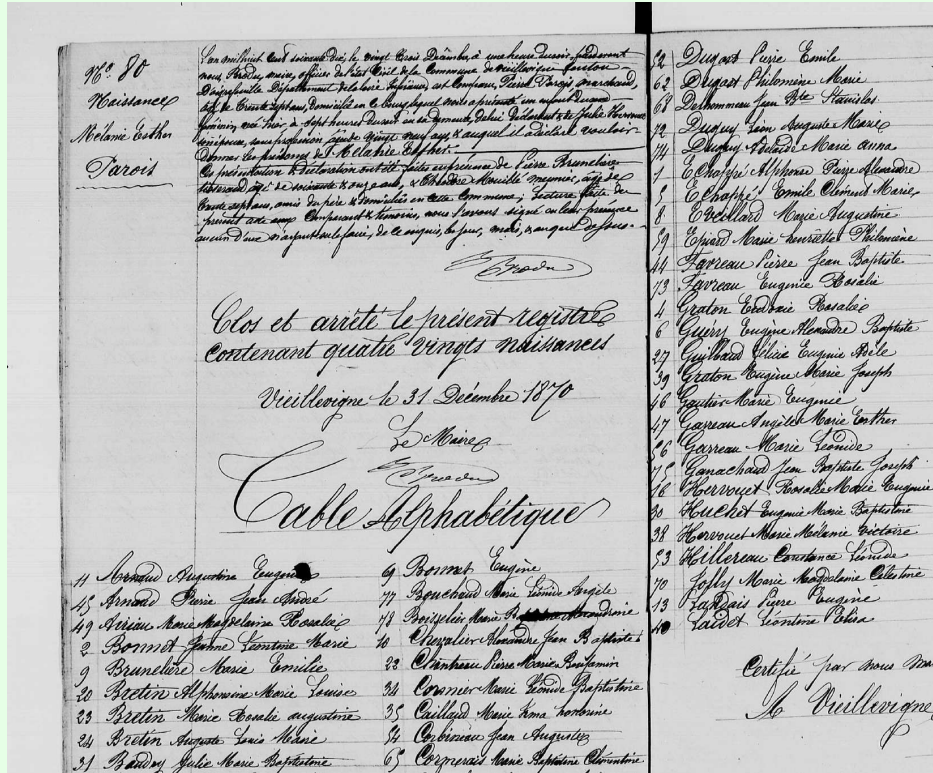 No. 80
Naissance
Mélanie Esther
Parois
L'an mil huit cent soixante dix, le vingt trois Décembre, à une heure du soir, pardevant
nous Brodu, maire, officier de l'état Civil de la Commune de Vieillevigne, canton
d'Aigrefeuille Département de la Loire Inférieure, est Comparu, Pierre Parois marchand,
âgé de trente sept ans, domicilié en ce bourg, lequel nous a présenté un enfant du sexe
féminin, né hier à sept heures du soir en sa demeure, de lui déclarant & de Julie
son épouse, sans profession, âgée de vingt neuf ans, & auquel il a déclaré vouloir
donner les prénoms de Mélanie Esther.
Ces présentation & déclaration ont été faites en présence de Pierre Brunelière
tisserand, âgé de soixante & onze ans, & Théodore Mouillé meunier, âgé de
trente sept ans, amis du père & domiciliés en cette Commune; lecture faite du
présent acte aux Comparant & témoins, nous l'avons signé en leur présence
aucun d'eux n'ayant su le faire, de ce enquis, les jour, mois, & an que dessus.
Brodu
Clos et arrêté le présent registre
contenant quatre vingts naissances
Vieillevigne le 31 Décembre 1870
Le Maire
Brodu
Table Alphabétique
11 Arnaud Augustine Eugénie
45 Arnaud Pierre Jean André
49 Marie Magdelaine Rosalie
2 Bonnet Jeanne Léontine Marie
9 Brunelière Marie Emilie
20 Bretin Alphonsine Marie Louise
23 Bretin Marie Rosalie augustine
24 Bretin Auguste Louis Marie
31 Baudry Julie Marie Baptistine
69 Bonnet Eugène
77 Bouchaud Marie Léonide Angèle
78 Marie
10 Chevalier Alexandre Jean Baptiste
22 Chantreau Pierre Marie Benjamin
34 Cormier Marie Léonide Baptistine
35 Caillaud Marie
54 Corbineau Jean Auguste
65 Cormerais Marie Baptistine Clémentine
52 Dugast Pierre Emile
62 Dugast Philomène Marie
68 Jean Bte Stanislas
72 Duguy Léon Auguste Marie
74 Duguy Adélaïde Marie anna
1 Echappé Alphonse Pierre Alexandre
5 Echappé Emile Clément Marie
8 Eveillard Marie Augustine
59 Epiard Marie henriette Philomène
44 Favreau Pierre Jean Baptiste
73 Favreau Eugénie Rosalie
4 Graton Rosalie
6 Guéry Eugène Alexandre Baptiste
27 Guilbaud Félicie Eugénie Adèle
39 Graton Eugène Marie Joseph
46 Gautier Marie Eugénie
47 Garreau Angèle Marie Esther
56 Garreau Marie Léonide
75 Ganachaud Jean Baptiste Joseph
76 Hervouet Rosalie Marie Eugénie
30 Huchet Eugénie Marie Baptistine
38 Hervouet Marie Mélanie Victoire
53 Hillereau Constance Léonide
70 Jolly Marie Magdelaine Célestine
13 Landais Pierre Eugène
40 Laidet Léontine Elisa
Certifié par nous
A Vieillevigne